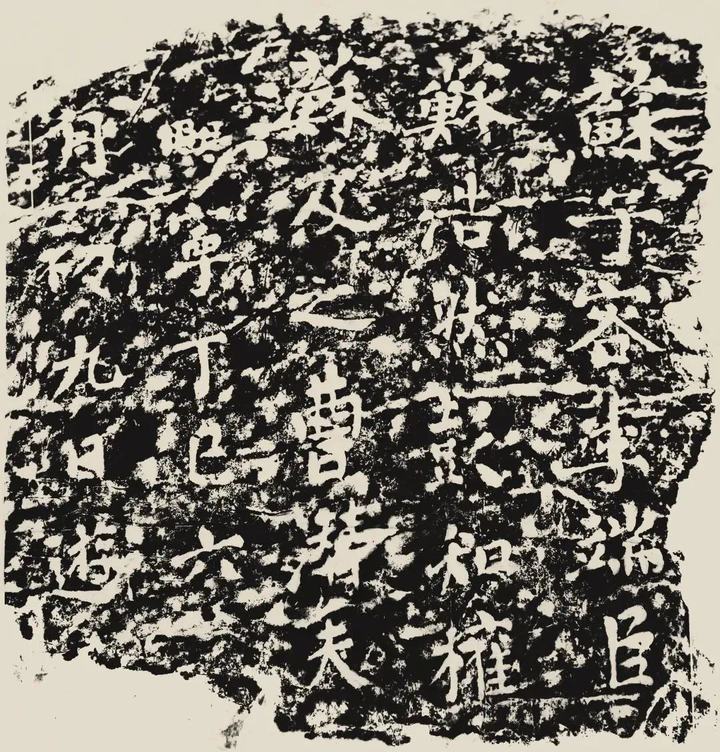 蘇子容李端臣
蘇浩然
蘇及之曹夫
熙寧丁巳六
月初九日遊